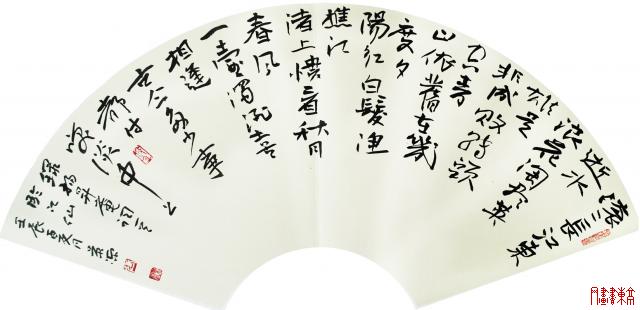 滚滚長江東
逝水
浪花淘尽英
雄是
非成敗转頭
空青
山依舊在幾
度夕
陽红白髮渔
樵江
渚上慣看秋月
春風
一壶濁酒喜
相逢
古今多少事
都付
笑谈中
録楊升庵詞
臨江仙
壬辰夏月